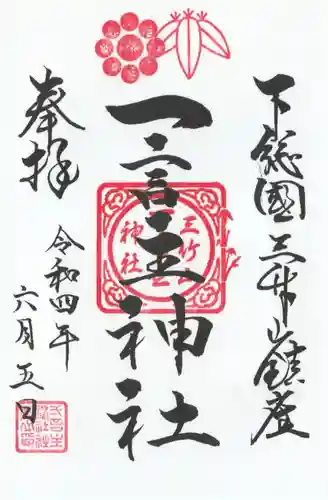 下総國三竹山鎮座
一言主神社
奉拝
令和四年
六月五日
三竹
神社